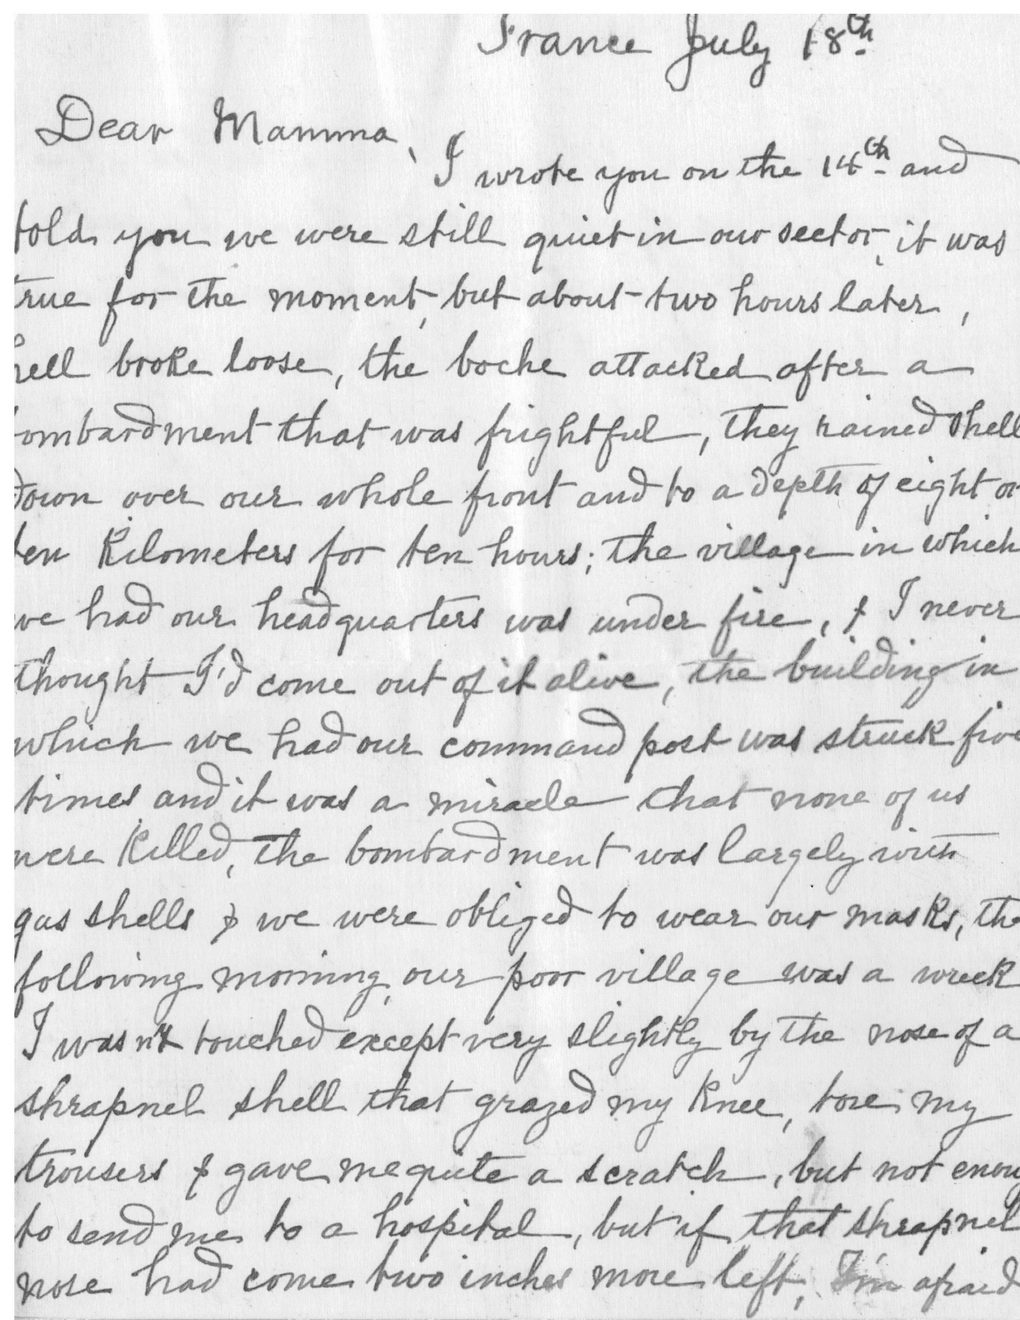 France July 18th
Dear Mamma,
I wrote you on the 14th and
told you we were still quiet in our sector, it was
true for the moment, but about two hours later,
hell broke loose, the boche attacked after a
bombardment that was frightful, they rained shell
down over our whole front and to a depth of eight or
ten Kilometers for ten hours; the village in which
we had our headquarters was under fire, & I never
thought I'd come out of it alive, the building in
which we had our command post was struck five
times and it was a miracle that none of us
were killed, the bombardment was largely with
gas shells & we were obliged to wear our masks, the
following morning, our poor village was a wreck
I wasn't touched except very slightly by the nose of a
shrapnel shell that grazed my knee, tore my
trousers & gave me quite a scratch, but not enou
to send me to a hospital, but if that shrapnel
nose had come two inches more left, I'm afraid